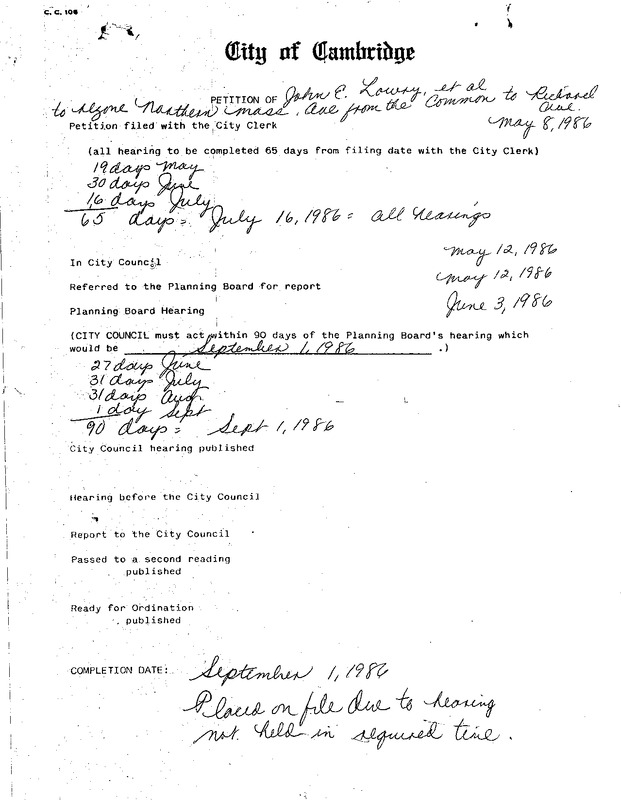 C. C. 106
City of Cambridge
PETITION OF John E. Lowry, et al
to rezone Northern Mass. Ave from the Common to Richard Ave.
Petition filed with the City Clerk May 8, 1986
(all hearing to be completed 65 days from filing date with the City Clerk)
19 days May
30 days June
16 days July
65 days = July 16, 1986 = all hearings
In City Council May 12, 1986
Referred to the Planning Board for report May 12, 1986
Planning Board Hearing June 3, 1986
(CITY COUNCIL must act within 90 days of the Planning Board's hearing which
would be September 1, 1986 .)
27 days June
31 days July
31 days Aug
1 day Sept
90 days = Sept 1, 1986
City Council hearing published
Hearing before the City Council
Report to the City Council
Passed to a second reading
published
Ready for Ordination
published
COMPLETION DATE: September 1, 1986
Placed on file due to hearing
not held in required time.